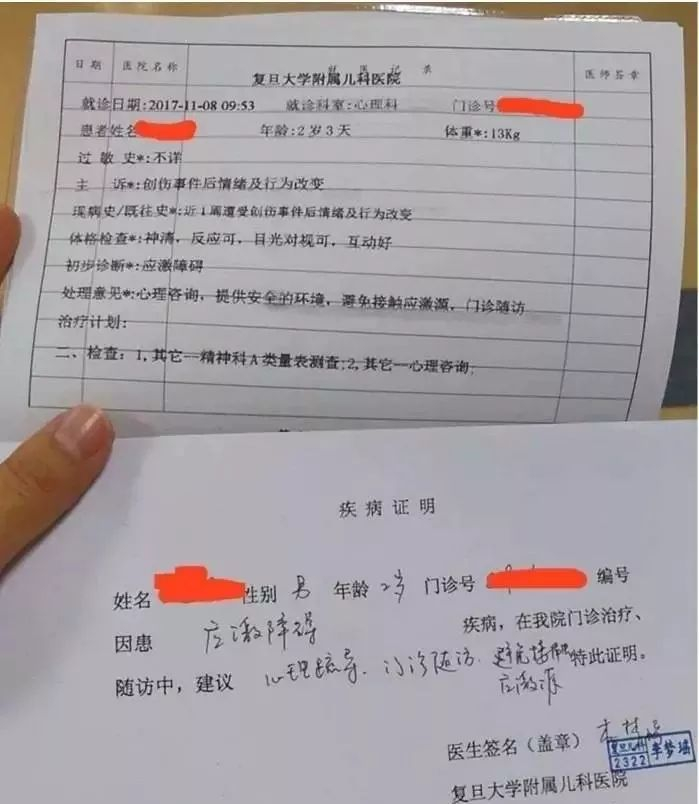 日期 医院名称 就医记录 医师签章
复旦大学附属儿科医院
就诊日期:2017-11-08 09:53 就诊科室:心理科 门诊号
患者姓名 年龄:2岁3天 体重*:13Kg
过敏史*:不详
主诉*:创伤事件后情绪及行为改变
现病史/既往史*:近1周遭受创伤事件后情绪及行为改变
体格检查*:神清，反应可，目光对视可，互动好
初步诊断*:应激障碍
处理意见*:心理咨询，提供安全的环境，避免接触应激源，门诊随访
治疗计划:
二、检查: 1,其它--精神科A类量表测查;2,其它--心理咨询;
疾病证明
姓名 性别 男 年龄 2岁 门诊号 编号
因患 应激障碍 疾病，在我院门诊治疗、
随访中，建议 心理疏导、门诊随访、避免接触 特此证明。
应激源
医生签名（盖章）
复旦儿科 2322 李梦瑶
复旦大学附属儿科医院